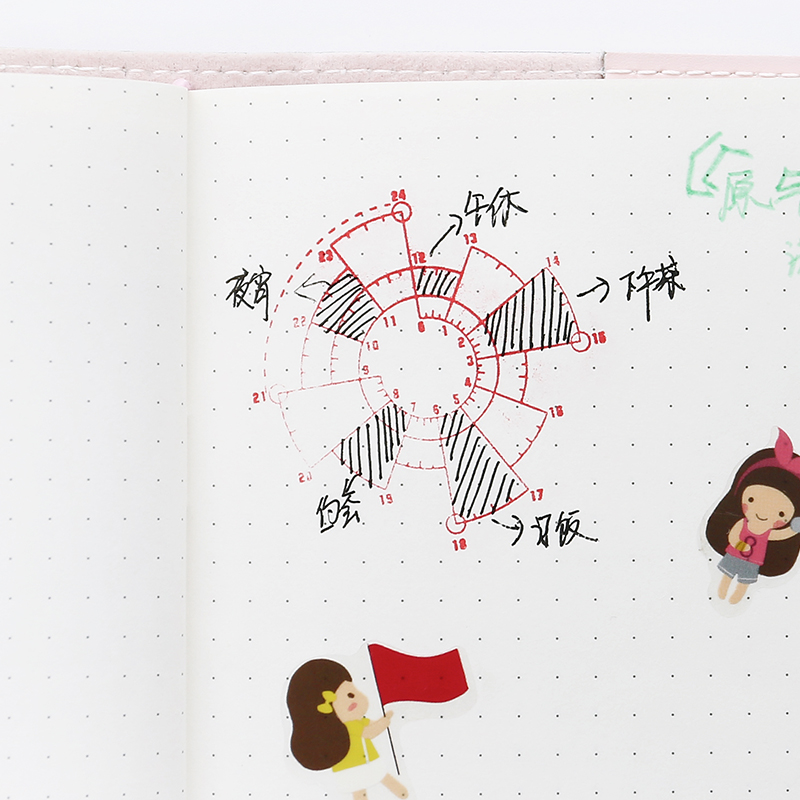 24
午休
23
12
13
14
下午茶
夜宵
22
11
0
1
2
15
10
3
9
4
21
8
7
6
5
16
20
19
17
约会
18
订饭
原